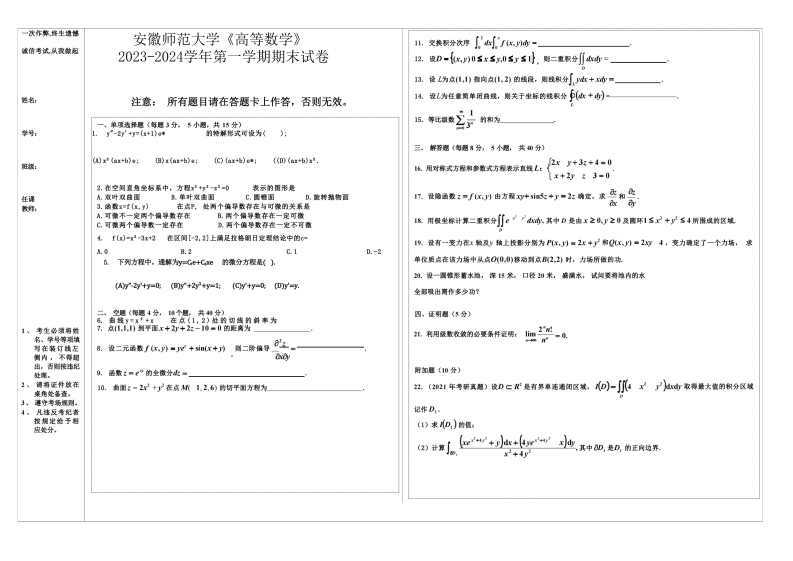 一次作弊,终生遗憾
诚信考试,从我做起
姓名:
学号:
班级:
任课
教师:
1 、 考生必须将姓
名、学号等项填
写在装订线左
侧内 ，不得超
出，否则按违纪
处理。
2 、 请将证件放在
桌角处备查。
3 、 遵守考场规则。
4 、 凡违反考纪者
按规定给予相
应处分。
安徽师范大学《高等数学》
2023-2024学年第一学期期末试卷
注意： 所有题目请在答题卡上作答，否则无效。
一、单项选择题（每题 3 分， 5 小题，共 15 分）
1. y"-2y'+y=(x+1)e* 的特解形式可设为( );
(A)x²(ax+b)e; (B)x(ax+b)e; (C)(ax+b)e*; ((D)(ax+b)x².
2.在空间直角坐标系中，方程x²+y²-x²=0 表示的图形是
A.双叶双曲面 B.单叶双曲面 C.圆锥面 D.旋转抛物面
3.函数z=f(x,y) 在点P, 处两个偏导数存在与可微的关系是
A.可微不一定两个偏导数存在 B.两个偏导数存在一定可微
C.可微两个偏导数一定存在 D.两个偏导数存在一定不可微
4. f(x)=x³-3x+2 在区间[-2,2]上满足拉格朗日定理结论中的c=
A.0 B.2 C.1 D.-2
5. 下列方程中，通解为y=C₁e+C₂xe 的微分方程是( ).
(A)y"-2y'+y=0; (B)y"+2y'+y=1; (C)y'+y=0; (D)y'=y.
二、 空题（每题 4 分， 10个题， 共 40 分）
6. 曲线y=x³+x 在点(1,2)处的切线的斜率为
7. 点(1,1,1) 到平面 x + 2y + 2z − 10 = 0 的距离为 ________.
8. 设二元函数 f (x, y) = yeˣ + sin(x + y) 则二阶偏导 ∂²z/∂x∂y = ________.
9. 函数 z = eˣʸ 的全微分dz = ________.
10. 曲面 z − 2x² + y² 在点 M( 1, 2, 6) 的切平面方程为________.
11. 交换积分次序 ∫₀² dx∫₀ˣ f (x, y)dy = ________.
12. 设D = {(x, y) 0 ≤ x ≤ y,0 ≤ y ≤ 1}， 则二重积分∬_D dxdy = ________.
13. 设 L为点(1,1) 指向点(1, 2) 的线段，则线积分∫_L ydx + xdy = ________.
14. 设L为任意简单闭曲线，则关于坐标的线积分 ∮_L (dx + dy) = ________.
15. 等比级数 ∑_{n=0}^∞ 1/3ⁿ 的和为________.
三、 解答题（每题 8 分， 5 小题， 共 40 分）
16. 用对称式方程和参数式方程表示直线 L： { 2x y + 3z + 4 = 0
x + 2y z 3 = 0 .
17. 设隐函数 z = f (x, y) 由方程 xy+ sin5z + y = 2z 确定，求 ∂z/∂x 和 ∂z/∂y .
18. 用极坐标计算二重积分∬_D e^{x² y²} dxdy, 其中 D 是由 x ≥ 0, y ≥ 0 及圆环1 ≤ x² + y² ≤ 4 所围成的区域.
19. 设有一变力在x 轴及y 轴上投影分别为 P(x, y) = 2x + y² 和Q(x, y) = 2xy 4 ，变力确定了一个力场， 求
单位质点在该力场中从点O(0,0)移动到点B(2,2) 时，力场所做的功.
20. 设一圆锥形蓄水池， 深 15 米， 口径 20 米， 盛满水， 试问要将池内的水
全部吸出需作多少功?
四、证明题（5 分）
21. 利用级数收敛的必要条件证明： lim_{n→∞} 2ⁿn!/nⁿ = 0.
附加题（10 分）
22. （2021 年考研真题）设D ⊂ R² 是有界单连通闭区域， I(D) = ∬_D (4 x² y²)dxdy 取得最大值的积分区域
记作 D₁ .
（1）求 I(D₁) 的值;
（2）计算 ∫_{∂D₁} ((xe^{x²+4y²} + y)dx + (4ye^{x²+4y²} x)dy)/(x² + 4y²) ,其中 ∂D₁ 是D₁ 的正向边界.